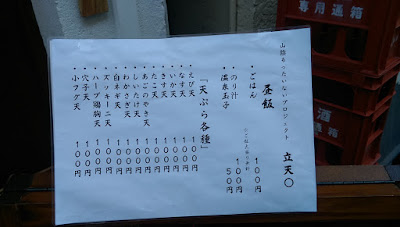 山陰もったいないプロジェクト 立天〇
昼飯
・ごはん １００円
・のり汁 １００円
・温泉玉子 ５０円
「天ぷら各種」
・えび天 １００円
・なす天 １００円
・いか天 １００円
・きす天 １００円
・たこ天 １００円
・あごのやき天 １００円
・しいたけ天 １００円
・わかさぎ天 １００円
・白ネギ天 １００円
・ズッキーニ天 １００円
・ハーブ鶏胸天 １００円
・穴子天 １００円
・小フグ天 １００円
専用通箱
酒